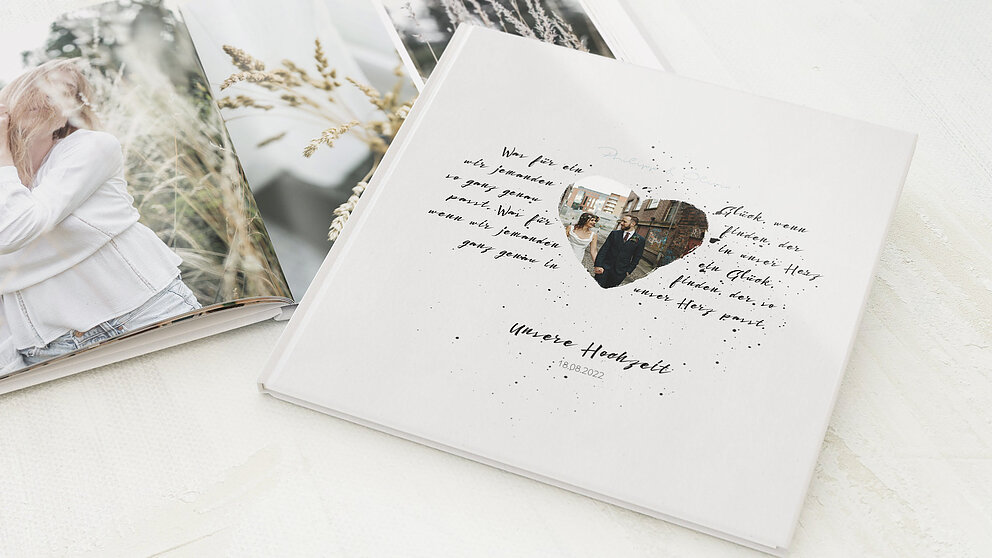 Was für ein
wir jemanden
so ganz genau
passt. Was für
wenn wir jemanden
ganz genau in
Glück, wenn
finden, der
in unser Herz
ein Glück,
finden, der so
unser Herz passt.
Unsere Hochzeit
18.08.2022